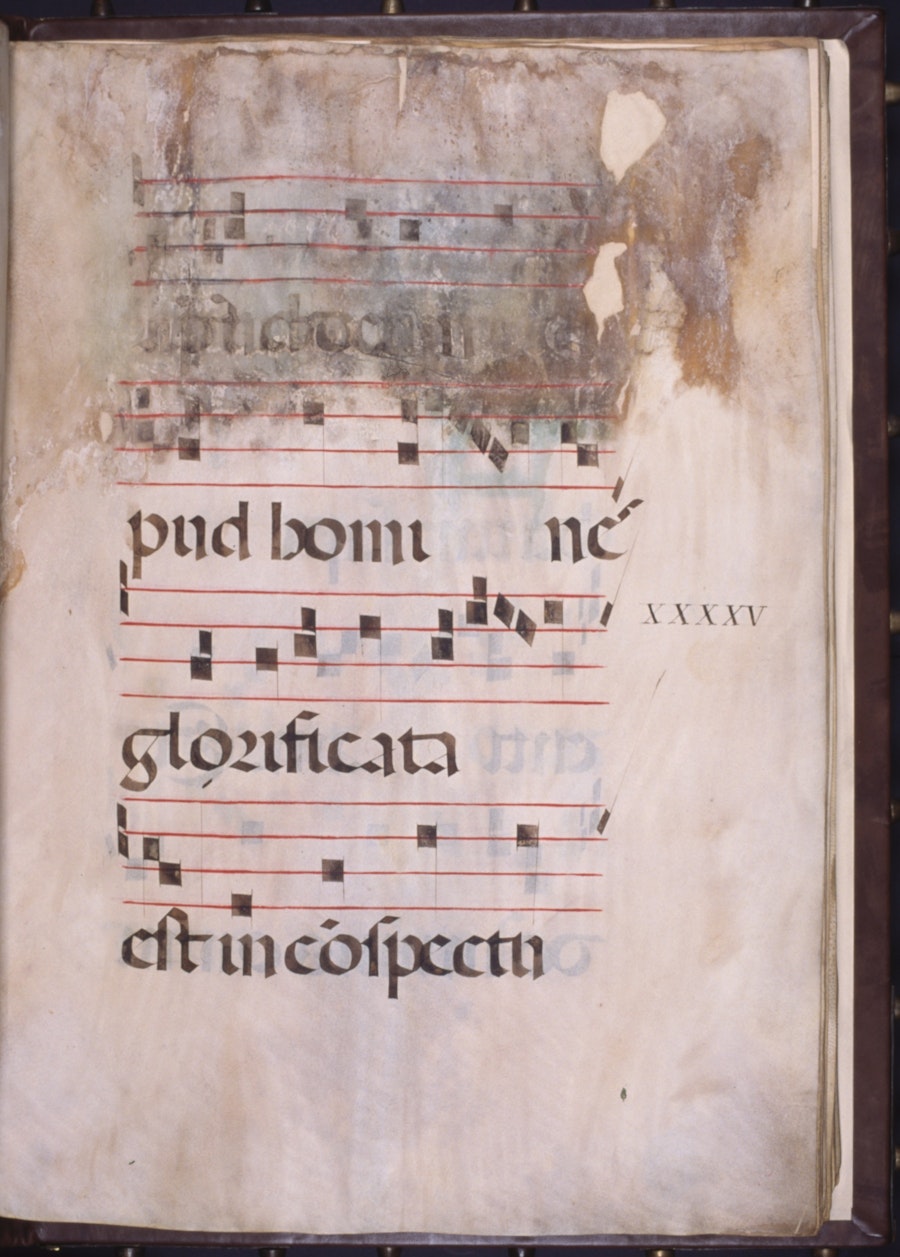 pud homi nē
XXXXV
glorificata
est in cōspectu